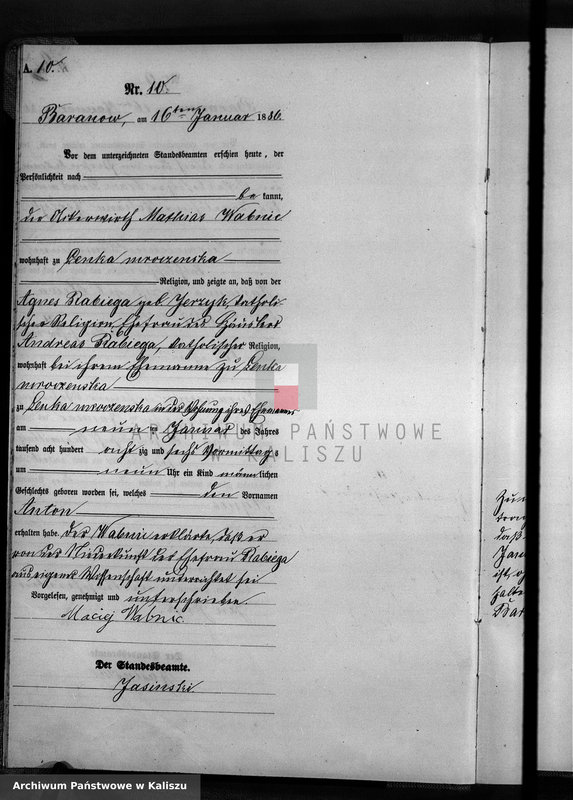 A. 10.
Nr. 10.
Baranow, am 16ten Januar 1886
Vor dem unterzeichneten Standesbeamten erschien heute, der
Persönlichkeit nach
be kannt,
der Ackerwirth Mathias Wabnic
wohnhaft zu Lenka mroczenska
Religion, und zeigte an, daß von der
Agnes Rabiega geb. Jerzyk, katholi-
scher Religion, Ehefrau des Häuslers
Andreas Rabiega, katholischer Religion,
wohnhaft bei ihrem Ehemanne zu Lenka
mroczenska
zu Lenka mroczenska in der Wohnung ihres Ehemannes
am neunten Januar des Jahres
tausend acht hundert acht zig und sechs Vormittags
um neun Uhr ein Kind männlichen
Geschlechts geboren worden sei, welches den Vornamen
Anton
erhalten habe. Der Wabnic erklärte, daß er
von der Niederkunft der Ehefrau Rabiega
aus eigener Wissenschaft unterrichtet sei
Vorgelesen, genehmigt und unterschrieben.
Maciej Wabnic
Der Standesbeamte.
Jasinski
ARCHIWUM PAŃSTWOWE
W KALISZU
Archiwum Państwowe w Kaliszu